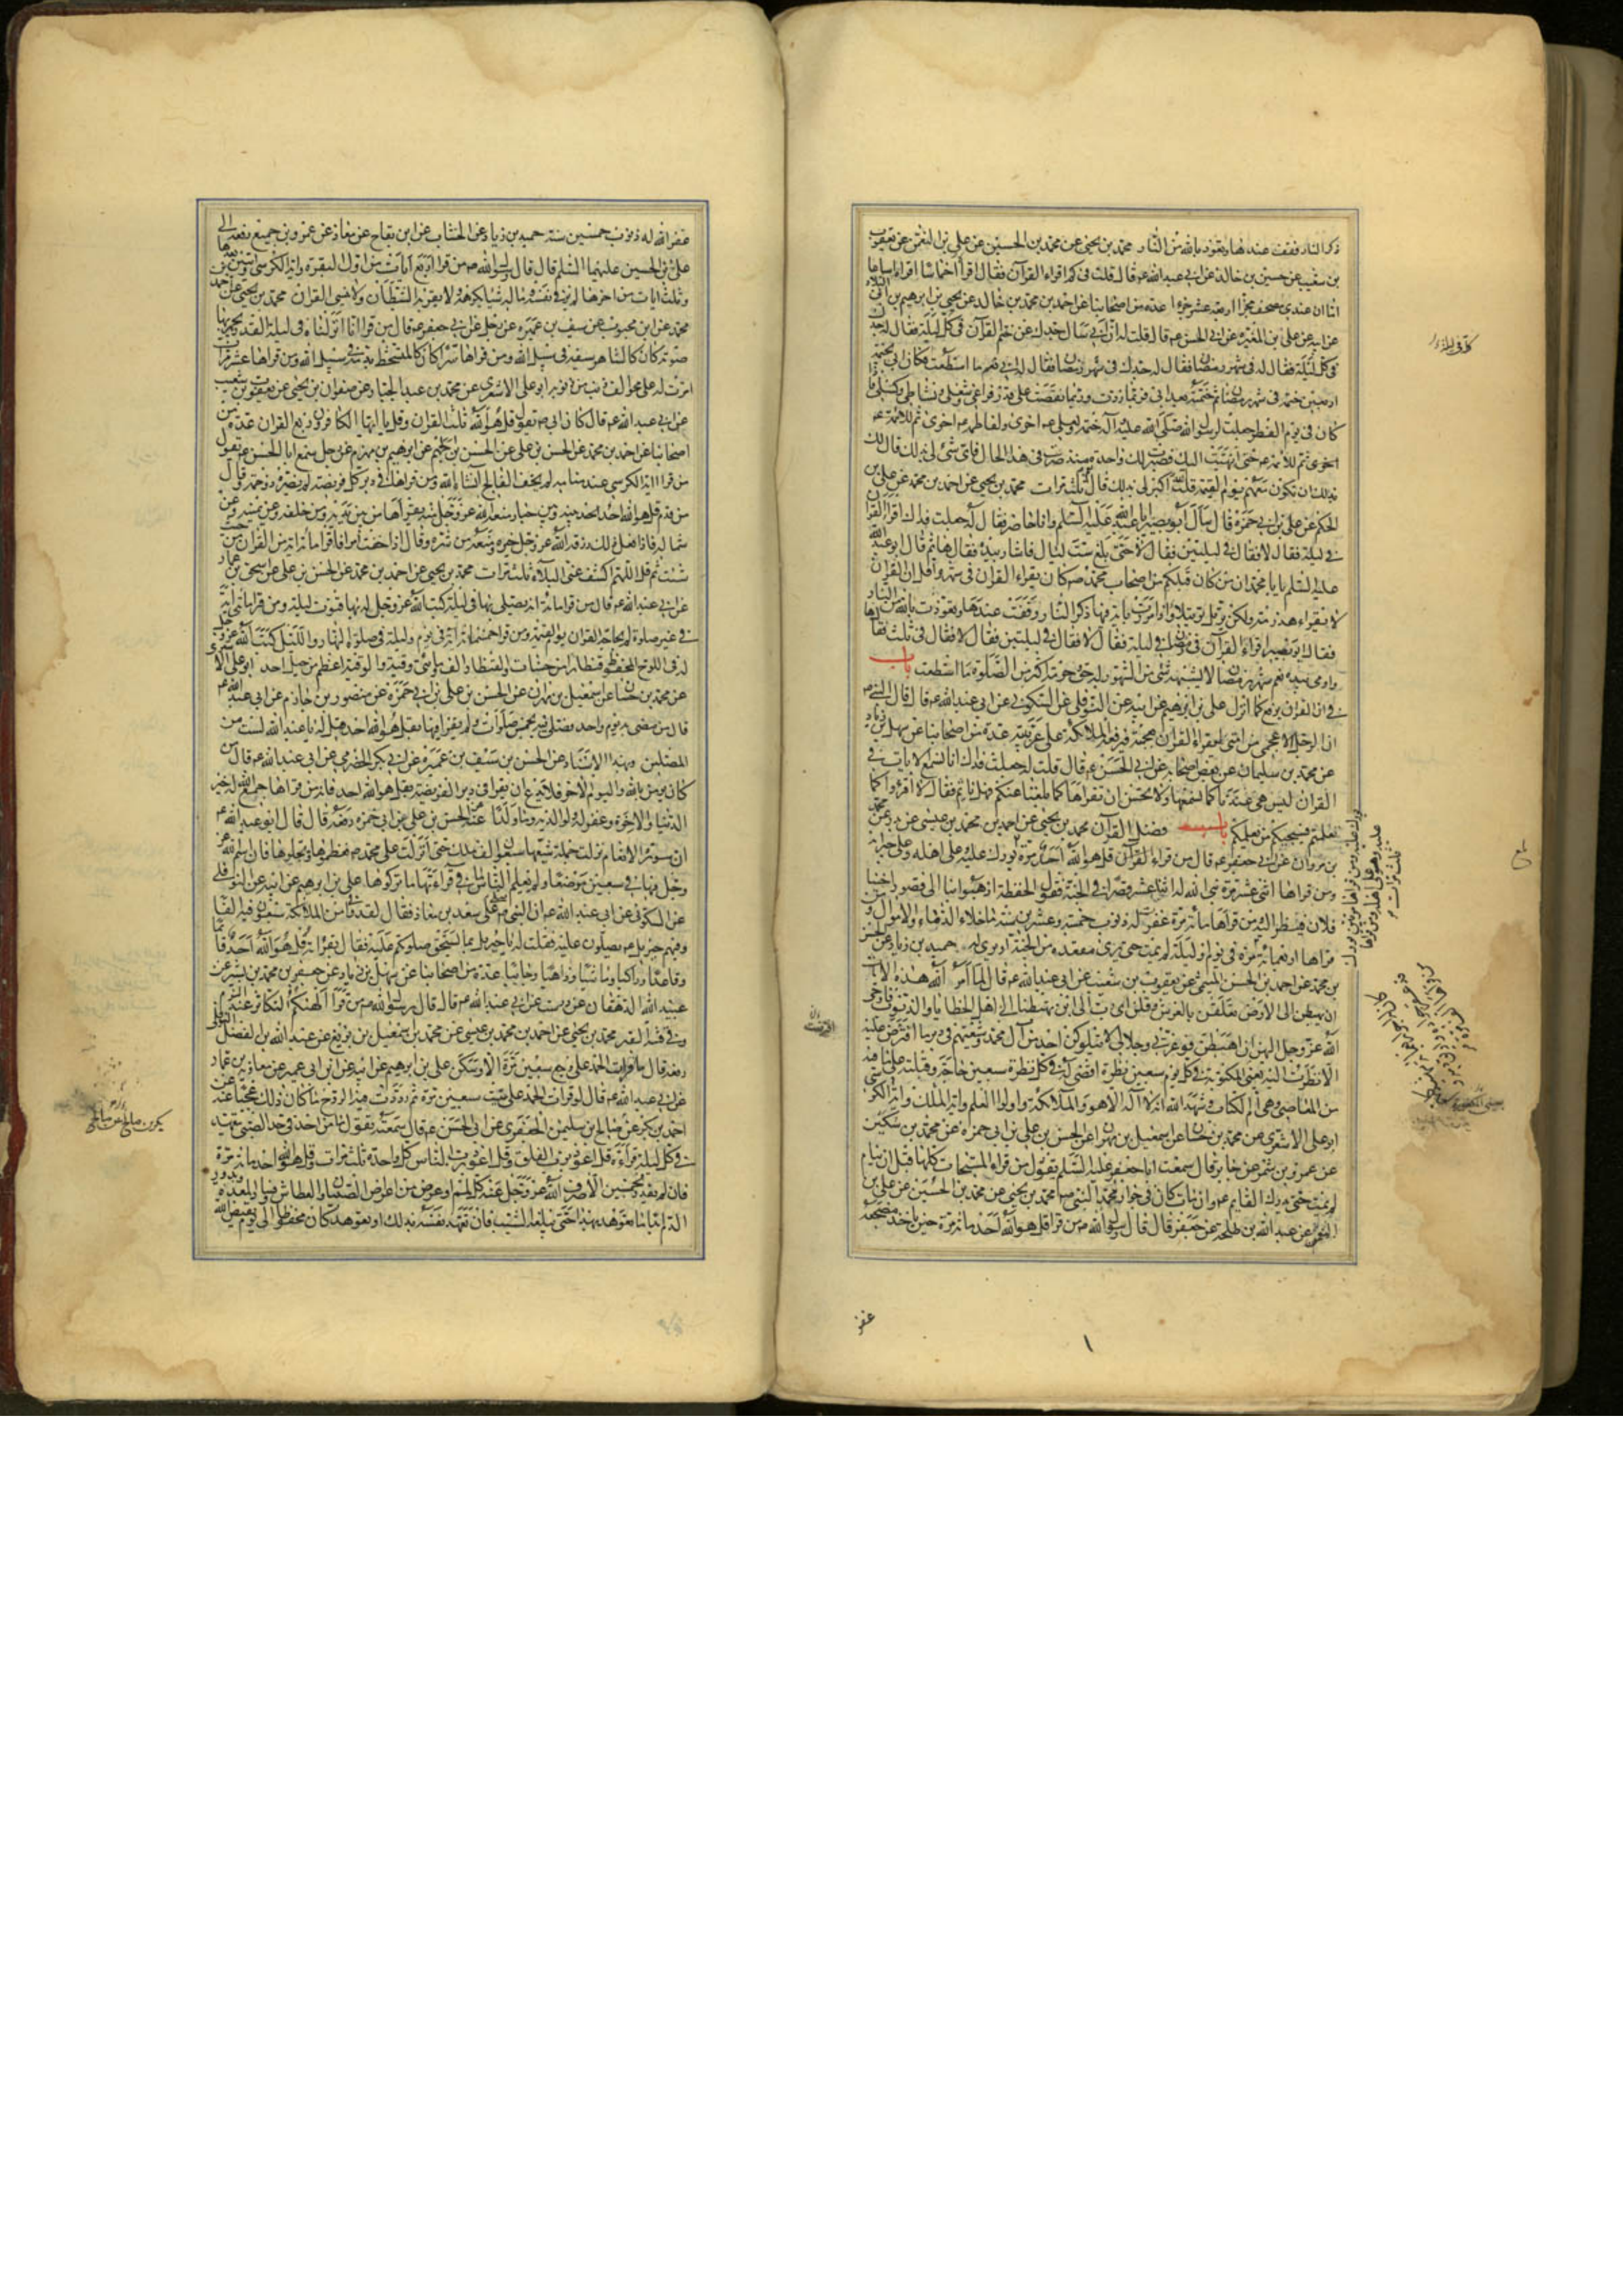 ذكر النار فقف عندها وتعوذ بالله من النار محمد بن يحيى عن محمد بن الحسين عن علي بن النعمن عن يعقوب
بن شعيب عن حسين بن خالد عن ابي عبد الله ع قال قلت في كم اقراء القرآن فقال اقرأ اخماسا اقراء اسباعا
اما ان عندي مصحف مجزا اربعة عشر جزءا عدة من اصحابنا عن احمد بن محمد بن خالد عن يحيى بن ابرهيم بن ابي البلاد
عن ابيه عن علي بن المغيرة عن ابي الحسن ع قال قلت له ان ابي سال جدك عن ختم القرآن في كل ليلة فقال له جدك
في كل ليلة فقال له في شهر رمضان فقال له جدك في شهر رمضان فقال له ابي نعم ما استطعت فكان ابي يختمه
اربعين ختمة في شهر رمضان ثم ختمته بعد ابي فربما زدت وربما نقصت على قدر فراغي وشغلي ونشاطي وكسلي فاذا
كان في يوم الفطر جعلت لرسول الله صلى الله عليه وآله ختمة ولعلي ع اخرى ولفاطمة ع اخرى ثم للائمة ع
اخرى ثم للائمة ع حتى انتهيت اليك فصيرت لك واحدة منذ صرت في هذا الحال فاي شئ لي بذلك قال لك
بذلك ان تكون معهم يوم القيمة قلت الله اكبر لي بذلك قال نعم ثلث مرات محمد بن يحيى عن احمد بن محمد عن علي بن
الحكم عن علي بن ابي حمزة قال سال ابو بصير ابا عبد الله عليه السلم وانا حاضر فقال له جعلت فداك اقرأ القرآن
في ليلة فقال لا فقال في ليلتين فقال لا حتى بلغ ست ليال فاشار بيده فقال ها ثم قال ابو عبد الله
عليه السلم يا با محمد ان من كان قبلكم من اصحاب محمد ص كان يقراء القرآن في شهر واقل ان القرآن
لا يقراء هذرمة ولكن يرتل ترتيلا واذا مررت باية فيها ذكر النار وقفت عندها وتعوذت بالله من النار
فقال ابو بصير اقراء القرآن في رمضان في ليلة فقال لا فقال في ليلتين فقال لا فقال في ثلث فقال ها
واومى بيده نعم شهر رمضان لا يشبهه شئ من الشهور له حق وحرمة اكثر من الصلوة ما استطعت باب
في ان القرآن يرفع كما انزل علي بن ابرهيم عن ابيه عن النوفلي عن السكوني عن ابي عبد الله ع قال قال النبي ص
ان الرجل الاعجمي من امتي ليقراء القرآن بعجمية فترفعه الملائكة على عربية عدة من اصحابنا عن سهل بن زياد
عن محمد بن سليمان عن بعض اصحابه عن ابي الحسن ع قال قلت له جعلت فداك انا نسمع الايات في
القرآن ليس هي عندنا كما نسمعها ولا نحسن ان نقراها كما بلغنا عنكم فهل ناثم فقال لا اقرؤا كما
تعلمتم فسيجيئكم من يعلمكم باب فضل القرآن محمد بن يحيى عن احمد بن محمد بن عيسى عن بدر عن محمد
بن مروان عن ابي جعفر ع قال من قراء قل هو الله احد مرة بورك عليه
ومن قراها اثنتي عشرة مرة بنى الله له اثنا عشر قصرا في الجنة فتقول الحفظة اذهبوا بنا الى قصور اخينا
فلان فننظر اليها ومن قراها مائة مرة غفرت له ذنوب خمسة وعشرين سنة ما خلا الدماء والاموال ومن
قراها اربعمائة مرة
قراها الف مرة في يوم وليلة لم يمت حتى يرى مقعده من الجنة او يرى له حميد بن زياد عن الحسن
بن محمد عن احمد بن الحسن الميثمي عن يعقوب بن شعيب عن ابي عبد الله ع قال لما امر الله هذه الايات
ان يهبطن الى الارض تعلقن بالعرش وقلن اي رب الى اين تهبطنا الى اهل الخطايا والذنوب فاوحى
الله عز وجل اليهن ان اهبطن فوعزتي وجلالي لا يتلوكن احد من آل محمد وشيعتهم في دبر ما افترضت عليه
الا نظرت اليه بعيني المكنونة في كل يوم سبعين نظرة اقضي له في كل نظرة سبعين حاجة وقبلته على ما فيه
من المعاصي وهي ام الكتاب وشهد الله انه لا اله الا هو والملائكة واولوا العلم واية الكرسي واية الملك
ابو علي الاشعري عن محمد بن حسان عن اسمعيل بن مهران عن الحسن بن علي بن ابي حمزة عن محمد بن سكين
عن عمرو بن شمر عن جابر قال سمعت ابا جعفر عليه السلم يقول من قراء المسبحات كلها قبل ان ينام
لم يمت حتى يدرك القايم ع وان مات كان في جوار محمد النبي ص محمد بن يحيى عن محمد بن الحسين عن علي بن
النعمن عن عبد الله بن طلحة عن جعفر قال قال رسول الله ص من قرا قل هو الله احد مائة مرة حين ياخذ مضجعه
غفر
١
غفر الله له ذنوب خمسين سنة حميد بن زياد عن الخشاب عن ابن بقاح عن معاذ عن عمرو بن جميع رفعه الى
علي بن الحسين عليهما السلم قال قال رسول الله ص من قرا اربع آيات من اول البقرة واية الكرسي وايتين بعدها
وثلث ايات من اخرها لم ير في نفسه وماله شيئا يكرهه ولا يقربه الشيطان ولا ينسى القرآن محمد بن يحيى عن احمد بن
محمد عن ابن محبوب عن سيف بن عميرة عن رجل عن ابي جعفر ع قال من قرا انا انزلناه في ليلة القدر يجهر بها
صوته كان كالشاهر سيفه في سبيل الله ومن قراها سرا كان كالمتشحط بدمه في سبيل الله ومن قراها عشر مرات
مرت له على محو الف ذنب من ذنوبه ابو علي الاشعري عن محمد بن عبد الجبار عن صفوان بن يحيى عن يعقوب بن شعيب
عن ابي عبد الله ع قال كان ابي ص يقول قل هو الله ثلث القرآن وقل يا ايها الكافرون ربع القرآن عدة من
اصحابنا عن احمد بن محمد عن الحسن بن علي عن الحسن بن الجهم عن ابرهيم بن مهزم عن رجل سمع ابا الحسن ع يقول
من قرا اية الكرسي عند منامه لم يخف الفالج انشاء الله ومن قراها في دبر كل فريضة لم يضره ذو حمة وقال
من قدم قل هو الله احد بينه وبين جبار منعه الله عز وجل منه يقراها من بين يديه ومن خلفه وعن يمينه وعن
شماله فاذا فعل ذلك رزقه الله عز وجل خيره ومنعه من شره وقال اذا خفت امرا فاقرا مائة اية من القرآن من حيث
شئت ثم قل اللهم اكشف عني البلاء ثلث مرات محمد بن يحيى عن احمد بن محمد عن الحسن بن علي عن اسحق بن عمار
عن ابي عبد الله ع قال من قرا مائة اية يصلي بها في ليلة كتب الله عز وجل له بها قنوت ليلة ومن قرا مائتي اية
في غير صلوة لم يحاجه القرآن يوم القيمة ومن قرا خمسمائة اية في يوم وليلة في صلوة النهار والليل كتب الله عز وجل
له في اللوح المحفوظ قنطارا من حسنات والقنطار الف ومائتي وقية والوقية اعظم من جبل احد ابو علي الاشعري
عن محمد بن حسان عن اسمعيل بن مهران عن الحسن بن علي بن ابي حمزة عن منصور بن حازم عن ابي عبد الله ع
قال من مضى به يوم واحد فصلى فيه بخمس صلوات ولم يقرا فيها بقل هو الله احد قيل له يا عبد الله لست من
المصلين وبهذا الاسناد عن الحسن بن سيف بن عميرة عن ابي بكر الحضرمي عن ابي عبد الله ع قال من
كان يؤمن بالله واليوم الآخر فلا يدع ان يقرا في دبر الفريضة بقل هو الله احد فانه من قراها جمع الله له خير
الدنيا والاخرة وغفر له ولوالديه وما ولدا عنه عن الحسن بن علي بن ابي حمزة رفعه قال قال ابو عبد الله ع
ان سورة الانعام نزلت جملة شيعها سبعون الف ملك حتى انزلت على محمد ص فعظموها وبجلوها فان اسم الله عز
وجل فيها في سبعين موضعا ولو يعلم الناس ما في قراءتها ما تركوها علي بن ابرهيم عن ابيه عن النوفلي
عن السكوني عن ابي عبد الله ع ان النبي ص صلى على سعد بن معاذ فقال لقد وافا من الملائكة سبعون الفا
وفيهم جبريل ع يصلون عليه فقلت له يا جبريل بما يستحق صلوتكم عليه فقال بقراءته قل هو الله احد قائما
وقاعدا وراكبا وماشيا وذاهبا وجائيا عدة من اصحابنا عن سهل بن زياد عن جعفر بن محمد بن بشير عن
عبيد الله الدهقان عن درست عن ابي عبد الله ع قال قال رسول الله ص من قرا الهيكم التكاثر عند النوم
وقي فتنة القبر محمد بن يحيى عن احمد بن محمد بن عيسى عن محمد بن اسمعيل بن بزيع عن عبد الله بن الفضل النوفلي
رفعه قال ما قرات الحمد على وجع سبعين مرة الا وسكن علي بن ابرهيم عن ابيه عن ابن ابي عمير عن معاوية بن عمار
عن ابي عبد الله ع قال لو قرات الحمد على ميت سبعين مرة ثم ردت فيه الروح ما كان ذلك عجبا عنه عن
احمد بن بكر عن صالح عن سليمن الجعفري عن ابي الحسن ع قال سمعته يقول ما من احد في حد الصبى يتعهد
في كل ليلة قراءة قل اعوذ برب الفلق وقل اعوذ برب الناس كل واحدة ثلث مرات وقل هو الله احد مائة مرة
فان لم يقدر فخمسين الا صرف الله عز وجل عنه كل لمم او عرض من اعراض الصبيان والعطاش وفساد المعدة وبدور
الدم ابدا ما تعوهد بهذا حتى يبلغه الشيب فان تعهد نفسه بذلك او تعوهد كان محفوظا الى يوم يقبض الله
بكر بن صالح